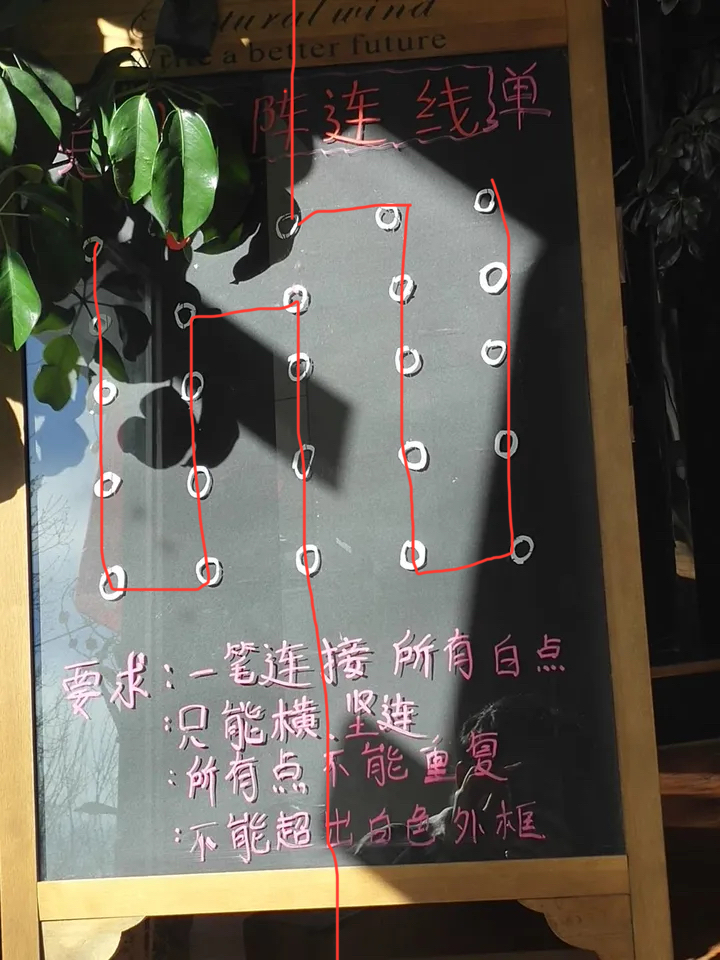 tural wind
Write a better future
阵连线单
要求:一笔连接所有白点
:只能横.竖连
:所有点不能重复
:不能超出白色外框